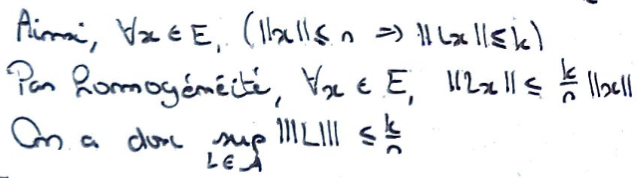 Ainsi, ∀x ∈ E, (||x|| ≤ n ⇒ ||Lx|| ≤ k)
Par homogénéité, ∀x ∈ E, ||Lx|| ≤ k/n ||x||
On a donc sup_{L∈A} |||L||| ≤ k/n